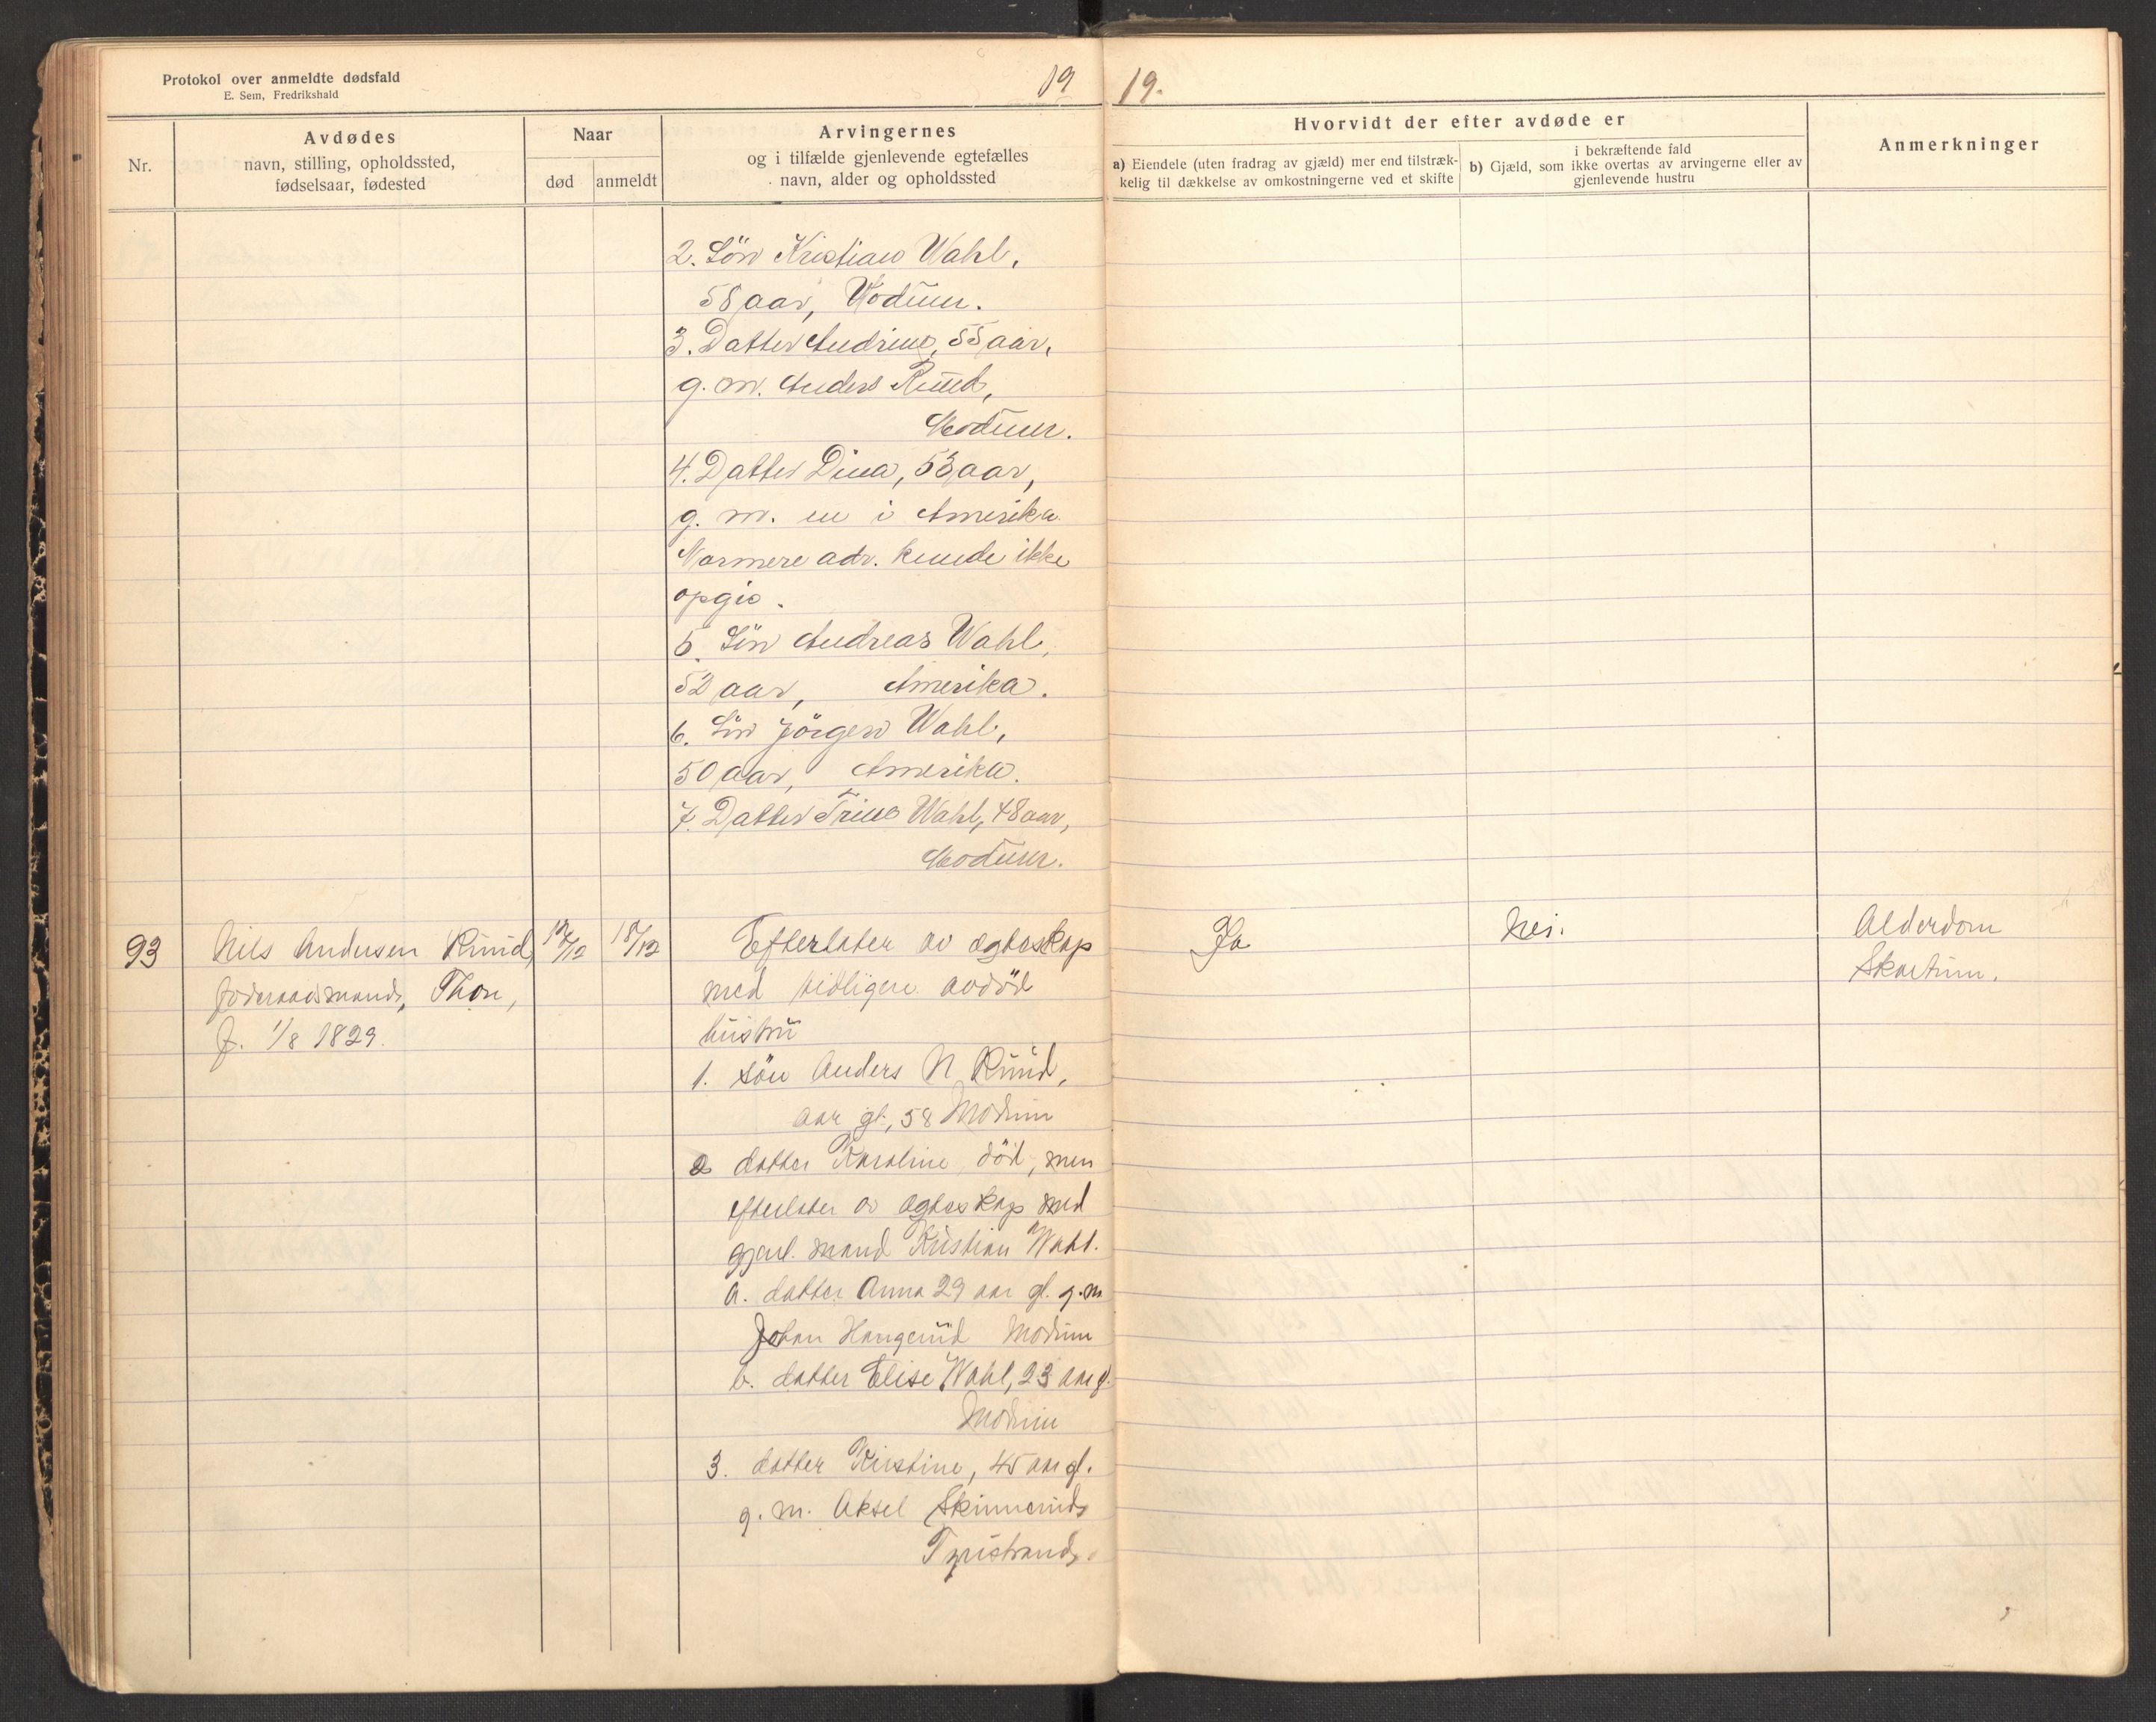 Protokol over anmeldte dødsfald
E. Sem, Fredrikshald
19
19.
Nr.
Avdødes
navn, stilling, opholdssted,
fødselsaar, fødested
Naar
død
anmeldt
Arvingernes
og i tilfælde gjenlevende egtefælles
navn, alder og opholdssted
Hvorvidt der efter avdøde er
a) Eiendele (uten fradrag av gjæld) mer end tilstræk-
kelig til dækkelse av omkostningerne ved et skifte
i bekræftende fald
b) Gjæld, som ikke overtas av arvingerne eller av
gjenlevende hustru
Anmerkninger
2. Sön Kristian Wahl,
58 aar, Modum.
3. Datter Andrine, 55 aar,
g. m. Anders Ruud,
Modum.
4. Datter Dina, 53 aar,
g. m. en i Amerika
Nærmere adr. kunde ikke
opgis.
5. Sön Andreas Wahl,
52 aar, Amerika.
6. Sön Jörgen Wahl,
50 aar, Amerika.
7. Datter Trine Wahl, 48 aar,
Modum.
93
Nils Andersen Ruud,
foderaadsmand, Thon,
f. 1/8 1829.
18/12
Efterlater av egteskap
med tidligere avdöd
hustru
1. sön Anders N Ruud,
aar gl., 58 Modum
2 datter Karoline död, men
efterlater av egteskap med
gjenl. mand Kristian Wahl.
a. datter Anna 29 aar gl. g. m
Johan Haugerud Modum
b. datter Elise Wahl, 23 aar g.
Modum
3. datter Kristine, 45 aar gl.
g. m. Aksel Skinnerud,
Tyristrand.
Ja
Nei.
Alderdom
Skartum.